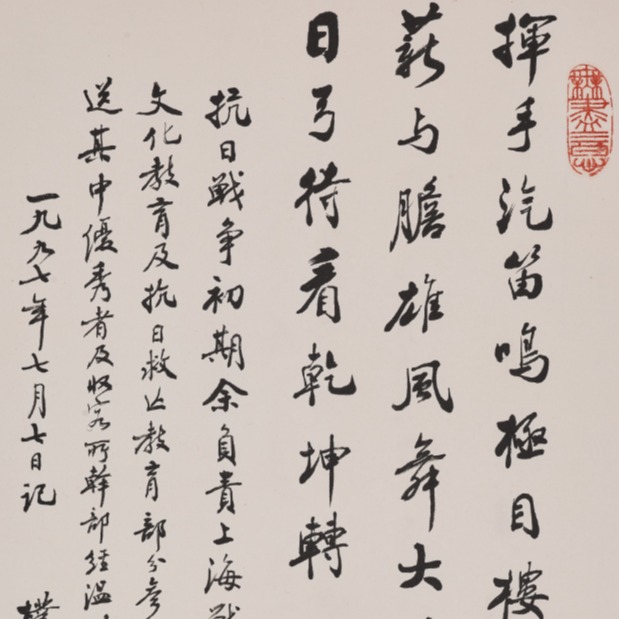 揮手汽笛鳴極目樓
薪与膽雄風舞大
日弓待看乾坤轉
抗日戰争初期余負責上海戰
文化教育及抗日救亡教育部分參
送其中優秀者及收容所幹部經温
一九九七年七月七日记
樸